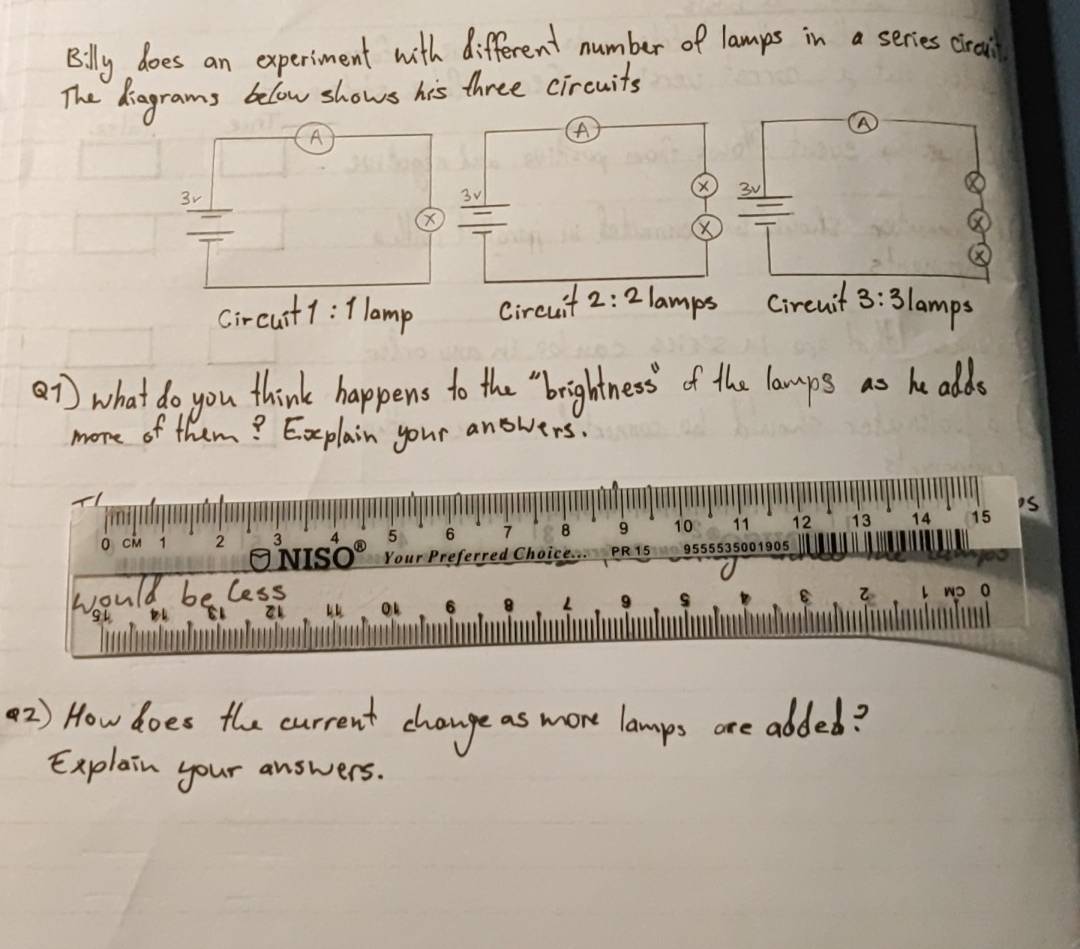 Billy does an experiment with different number of lamps in a series circuit.
The diagrams below shows his three circuits
A A A
3v 3v 3v
X X X X X X
Circuit 1 : 1 lamp Circuit 2 : 2 lamps Circuit 3 : 3 lamps
Q1) what do you think happens to the "brightness" of the lamps as he adds
more of them ? Explain your answers.
0 CM 1 2 3 4 5 6 7 8 9 10 11 12 13 14 15
NISO® Your Preferred Choice... PR 15 9555535001905
the lamps
would be less
15 14 13 12 11 10 9 8 7 6 5 4 3 2 1 CM 0
Q2) How does the current change as more lamps are added?
Explain your answers.